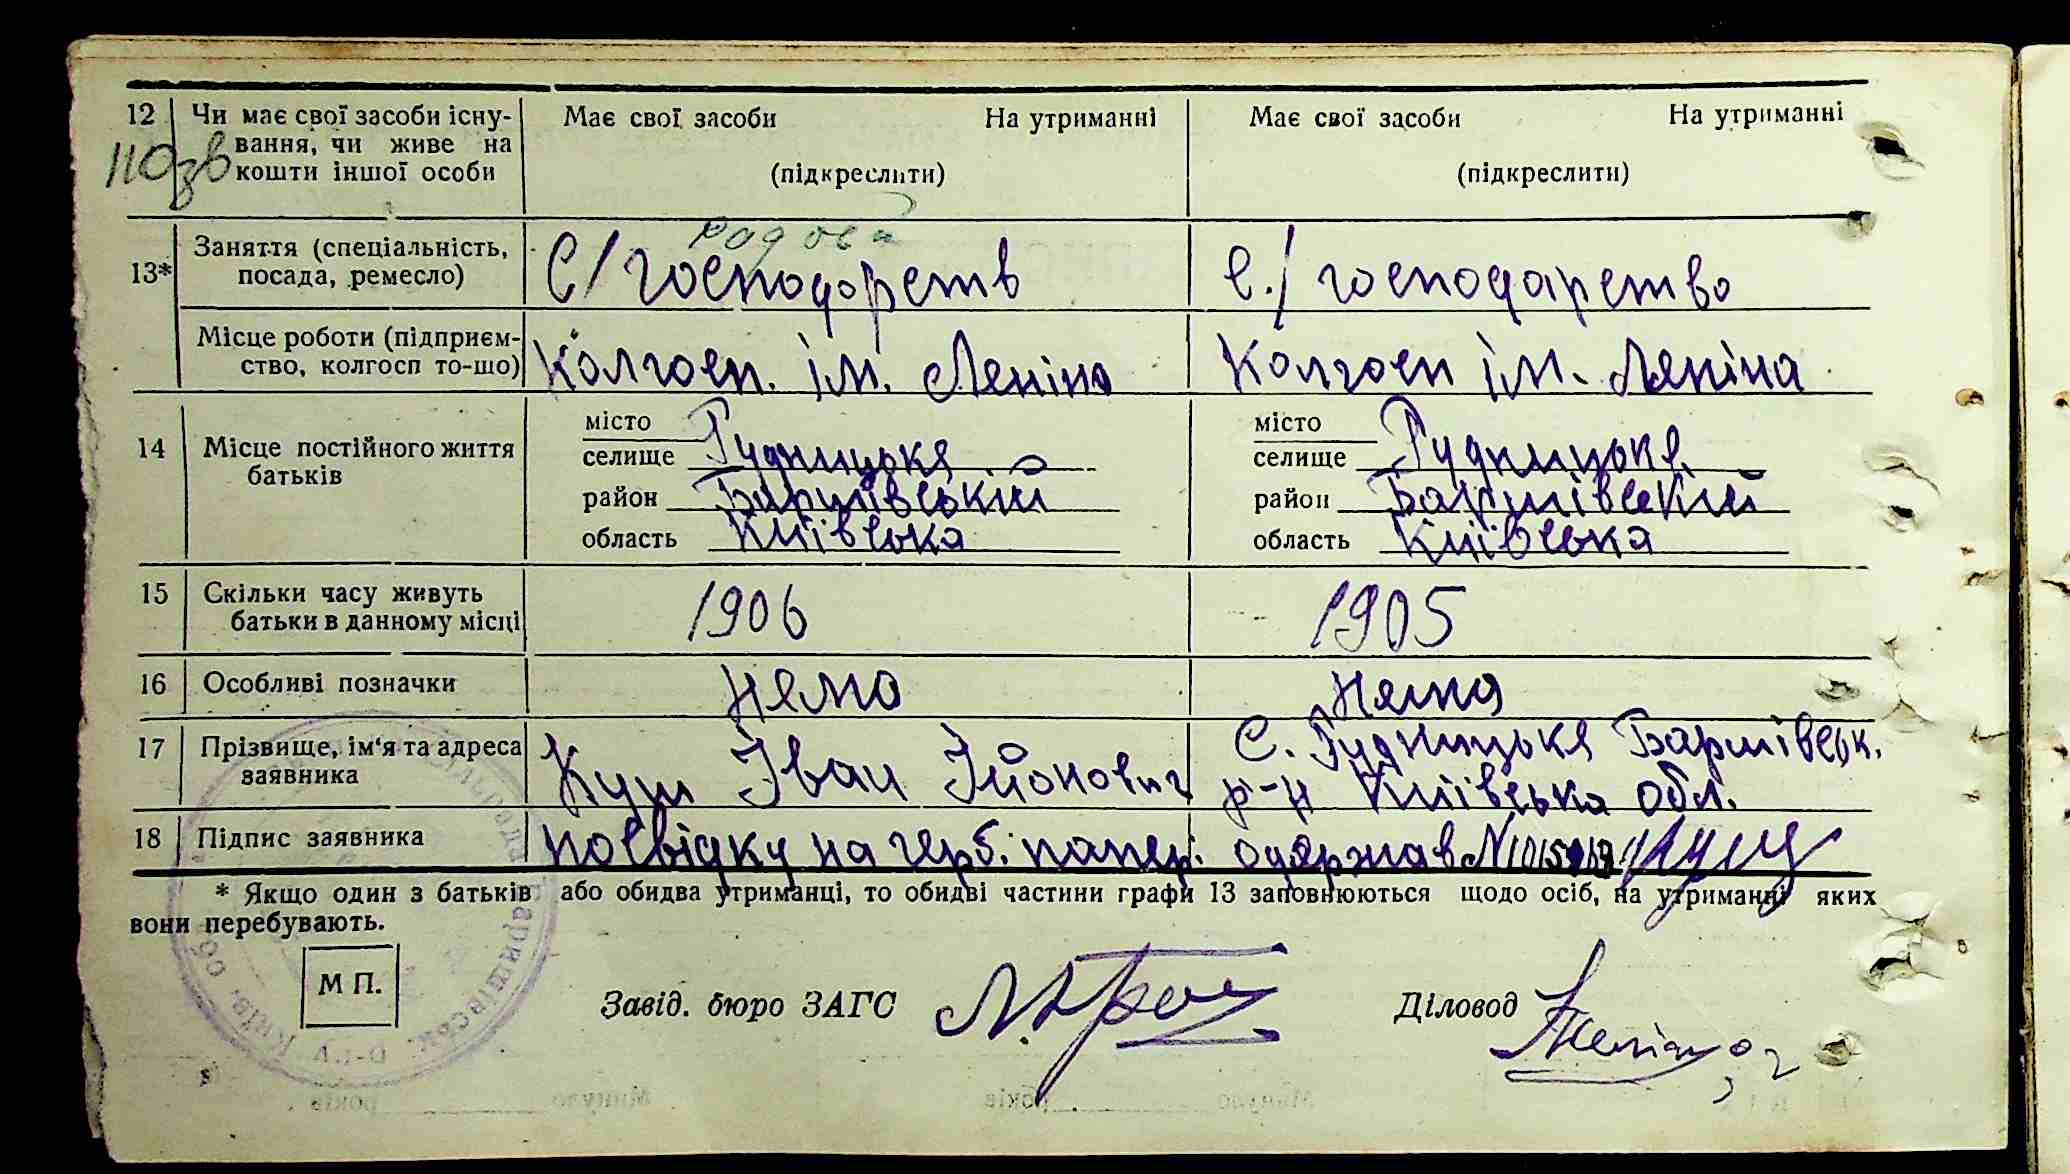 12 Чи має свої засоби існу- Має свої засоби На утриманні Має свої засоби На утриманні
вання, чи живе на
110зв кошти іншої особи (підкреслити) (підкреслити)
рядова
13* Заняття (спеціальність, С/господорств с./господарство
посада, ремесло)
Місце роботи (підприєм- Колгосп. ім. Леніна Колгосп ім. Леніна
ство, колгосп то-що)
14 Місце постійного життя місто місто
батьків селище Рудницьке селище Рудницьке
район Баришівський район Баришівський
область Київська область Київська
15 Скільки часу живуть 1906 1905
батьки в данному місці
16 Особливі позначки нема нема
17 Прізвище, ім'я та адреса Куш Іван С. Рудницьке Баришівськ.
заявника р-н Київська обл.
18 Підпис заявника посвідку на герб. папер. одержав N
* Якщо один з батьків або обидва утриманці, то обидві частини графи 13 заповнюються щодо осіб, на утриманні яких
вони перебувають.
М П. Завід. бюро ЗАГС Діловод